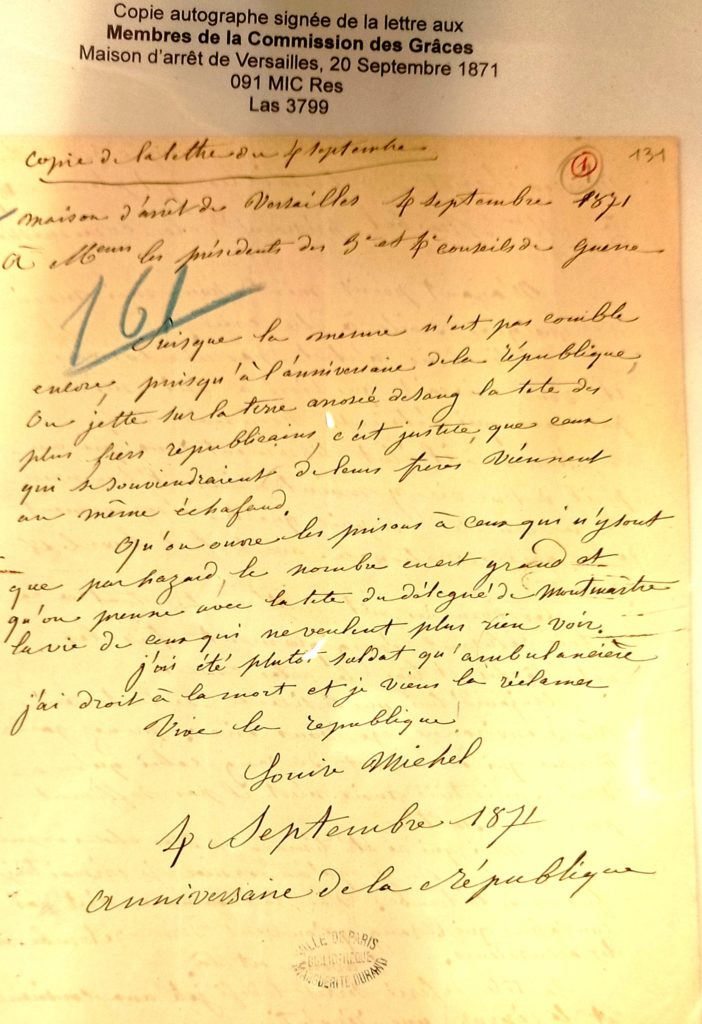 Copie autographe signée de la lettre aux
Membres de la Commission des Grâces
Maison d'arrêt de Versailles, 20 Septembre 1871
091 MIC Res
Las 3799
Copie de la lettre du 4 septembre
1
131
maison d'arrêt de Versailles 4 septembre 1871
à Meurs les présidents des 3e et 4e conseils de guerre
161
Puisque la mesure n'est pas comble
encore, puisqu'à l'anniversaire de la république,
On jette sur la terre arrosée de sang la tete des
plus fiers republicains, c'est justice, que ceux
qui se souviendraient de leurs frères viennent
au même échafaud.
Qu'on ouvre les prisons à ceux qui n'y sont
que par hazard, le nombre en est grand et
qu'on prenne avec la tete du délégué de Montmartre
la vie de ceux qui ne veulent plus rien voir.
j'ai été plutot soldat qu'ambulancière
j'ai droit à la mort et je viens la réclamer
Vive la republique
Louise Michel
4 Septembre 1871
anniversaire de la république
VILLE DE PARIS
BIBLIOTHEQUE
MARGUERITE DURAND